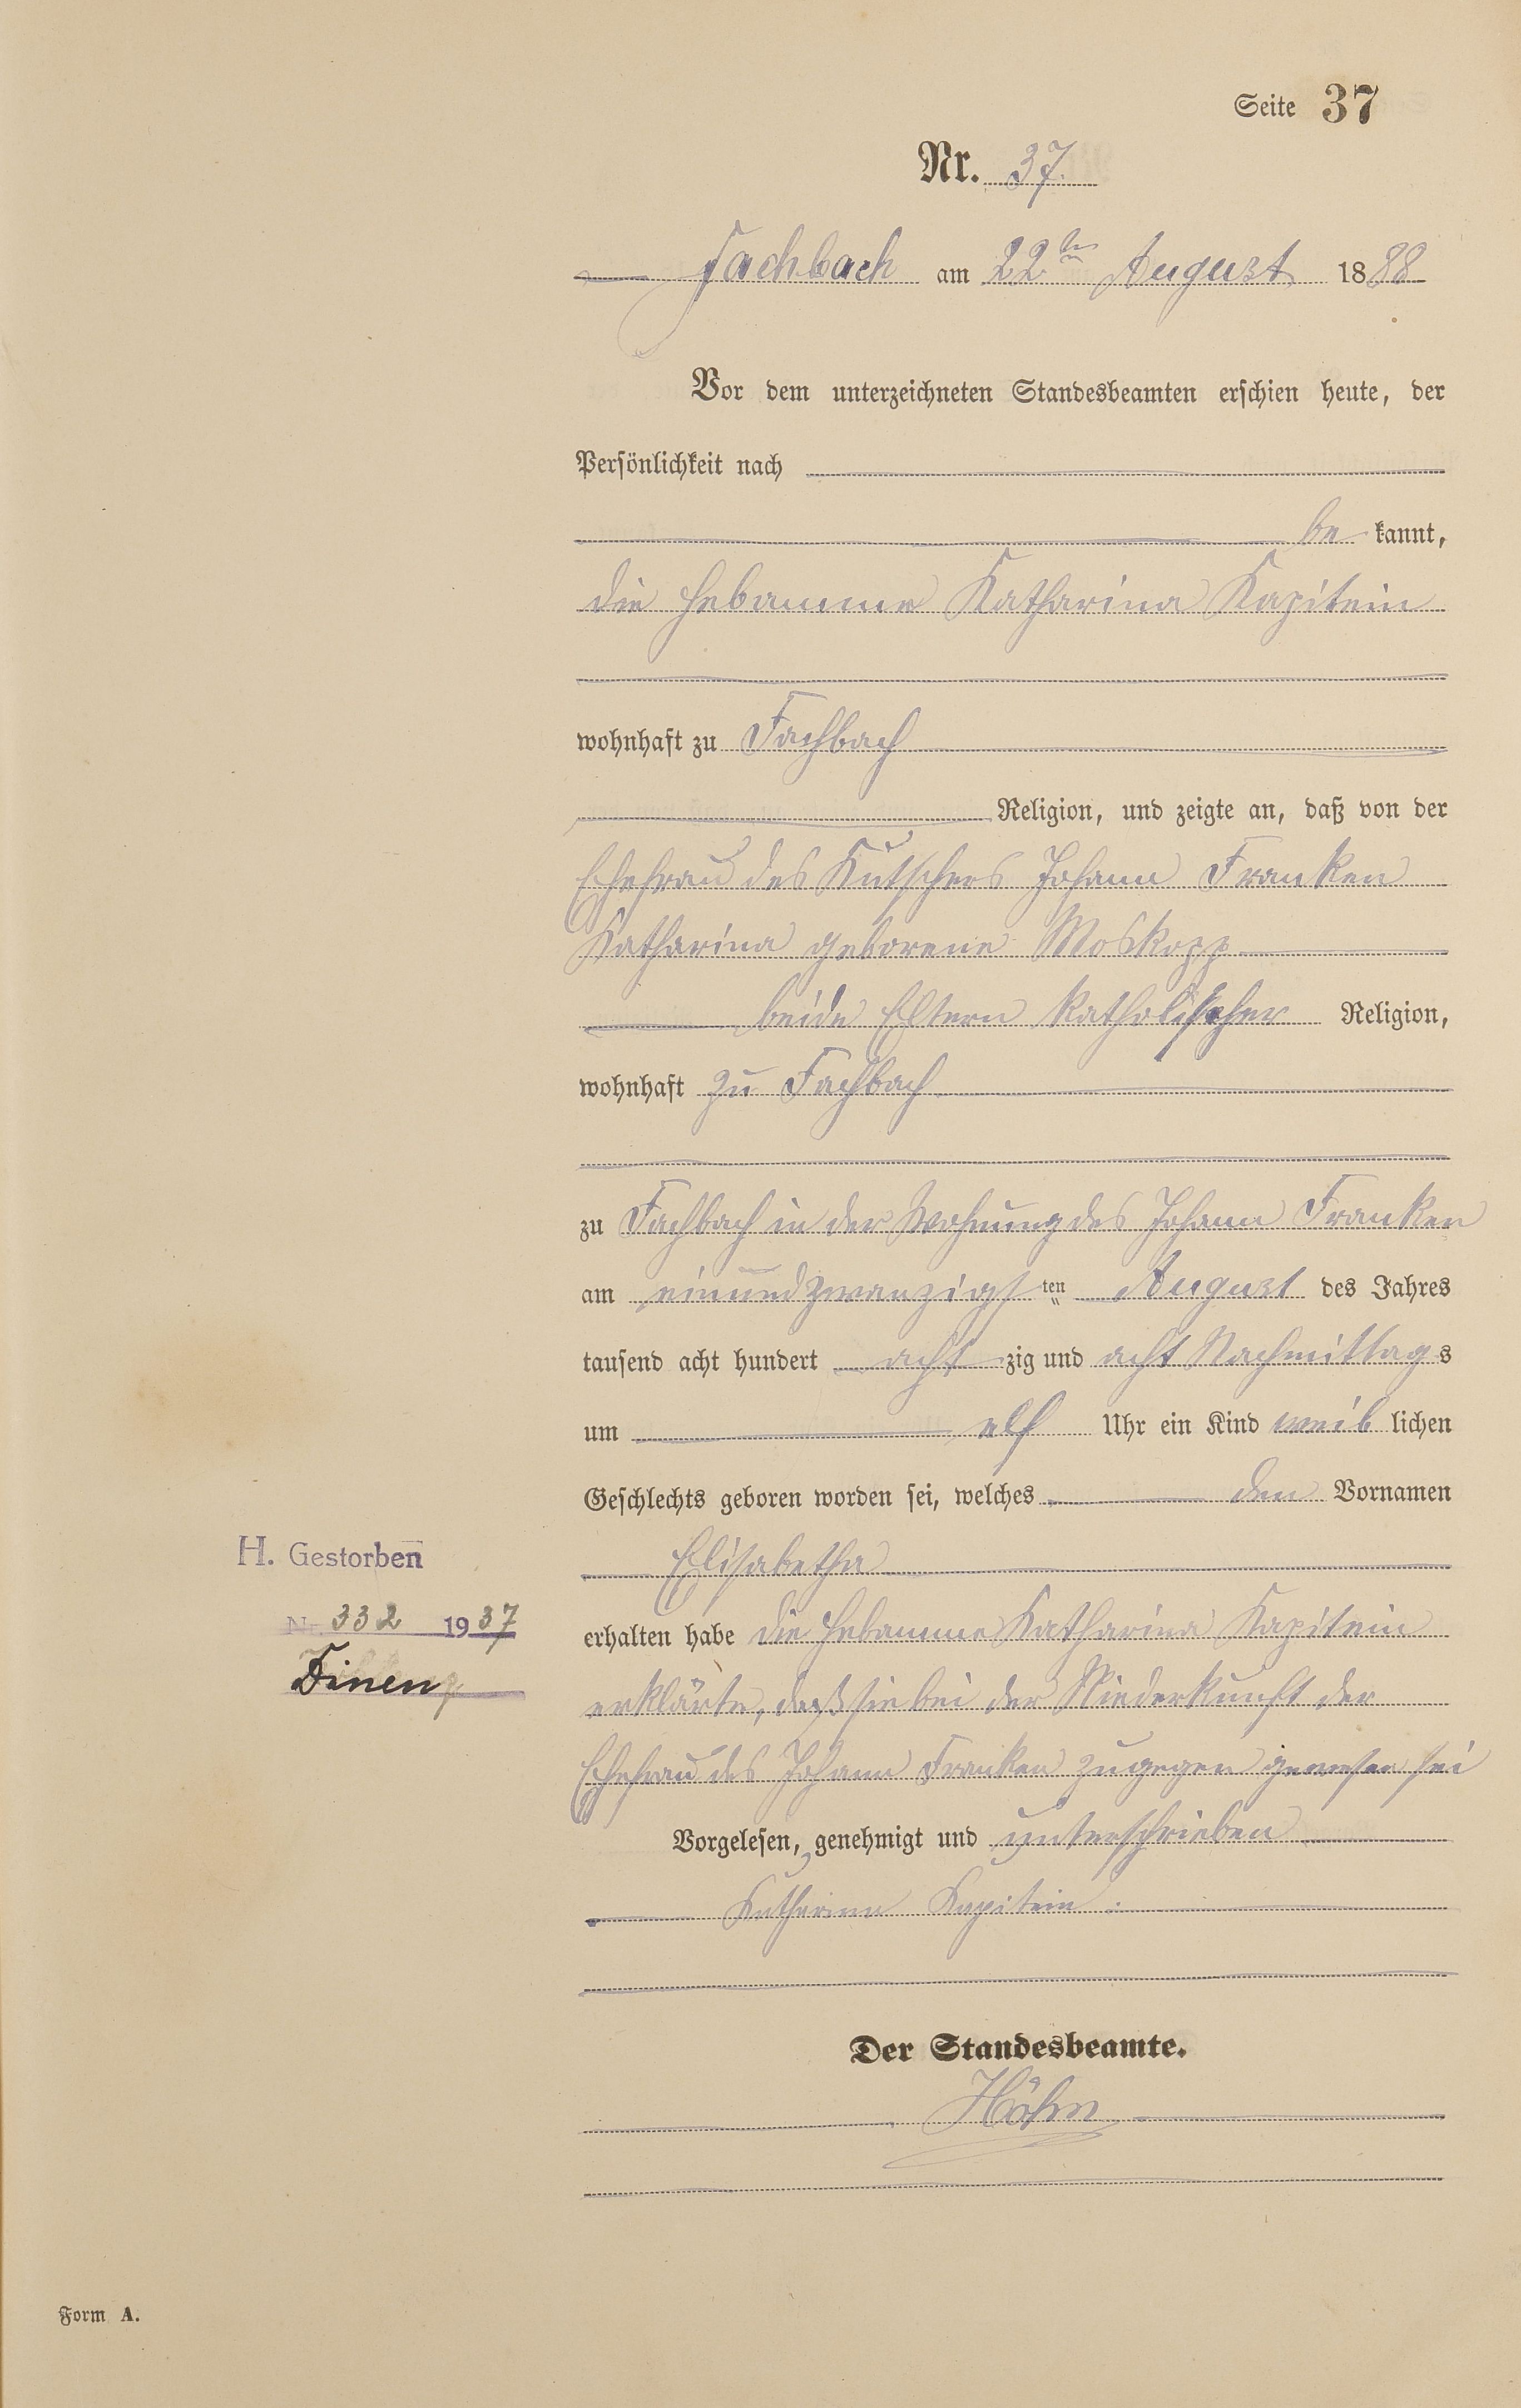 Seite 37
Nr. 37.
Fachbach am 22ten August 1888
Vor dem unterzeichneten Standesbeamten erschien heute, der
Persönlichkeit nach
be kannt,
die Hebamme Katharina Kapitein
wohnhaft zu Fachbach
Religion, und zeigte an, daß von der
Ehefrau des Kutschers Johann Franken
Katharina geborene Moskopp
beide Eltern katholischer Religion,
wohnhaft zu Fachbach
zu Fachbach in der Wohnung des Johann Franken
am einundzwanzigsten August des Jahres
tausend acht hundert acht zig und acht Nachmittags
um elf Uhr ein Kind weib lichen
Geschlechts geboren worden sei, welches den Vornamen
Elisabetha
H. Gestorben
Nr. 332 1937
erhalten habe die Hebamme Katharina Kapitein
erklärte, daß sie bei der Niederkunft der
Ehefrau des Johann Franken zugegen gewesen sei
Vorgelesen, genehmigt und unterschrieben
Katharina Kapitein.
Der Standesbeamte.
Höhn
Form A.